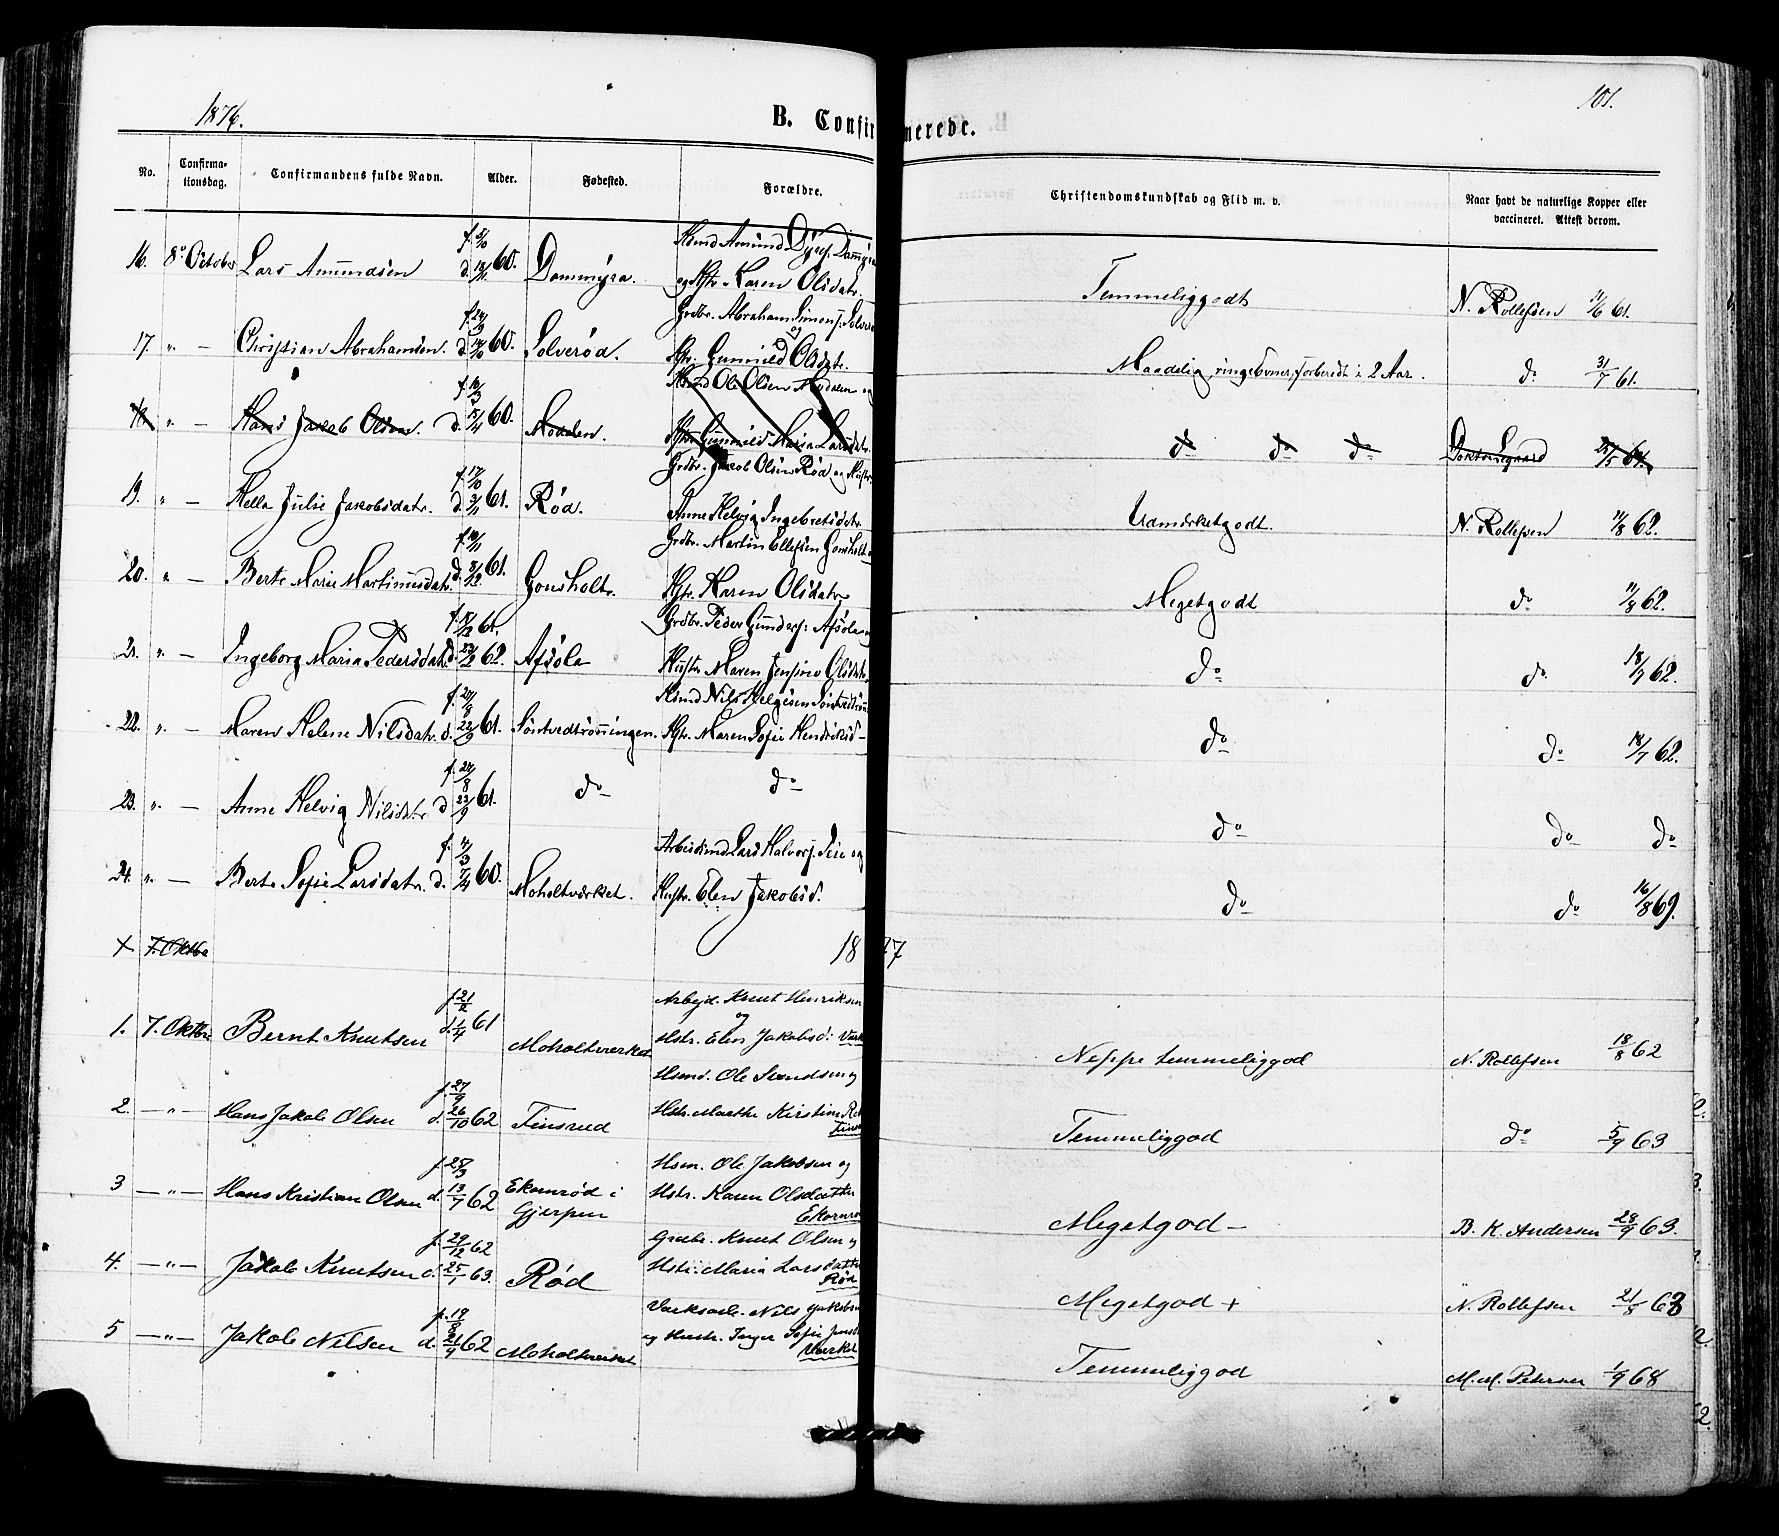 1876.
101.
B. Confirmerede.
No. Confirmationsdag. Confirmandens fulde Navn. Alder. Fødested. Forældre. Christendomskundskab og Flid m. v. Naar havt de naturlige Kopper eller vaccineret. Attest derom.
16. 8de October Lars Amundsen f. d. 60. Dammyra. Hsmd Amund og Hstr Karen Olsdatr. Temmeliggodt N. Rollefsen 11/6 61.
17. " — Christian Abrahamsen. f. 24/9 d. 14/10 60. Solverød. Grdbr. Abraham Simons. Solverød og Hstr. Gunnild Olsdatr. Maadelig, ringe Evner, forberedt i 2 Aar. do 31/7 61.
18. " — Hans Jakob Olsen. f. 16/3 d. 15/4 60. Modalen. Hsmd Ole Olsen Modalen og Hstr. Gunnild Maria Larsdatr. do do do Doktorsgaard
19. " — Hella Julie Jakobsdatr. f. 17/10 d. 3/11 61. Rød. Grdbr. Jakob Olsen Rød og Hustr. Anne Helvig Ingebretsdatr. Udmærketgodt. N. Rollefsen 11/8 62.
20. " — Berte Marie Martinusdatr. f. 10/11 d. 8/12 61. Gonsholt. Grdbr. Martin Ellefsen Gonsholt Hstr Karen Olsdatr Megetgodt do 11/8 62.
21. " — Ingeborg Maria Pedersdatr. f. 61. d. 62. Afsøla Grdbr. Peder Gunders. Afsøla og Hustr. Maren Olsdatr. do do 18/7 62.
22. " — Maren Helene Nilsdatr. f. 24/8 d. 22/9 61. Søntvedtrønningen. Hsmd Nils Helgesen Hstr. Maren Sofie Hendriksd — do do 18/7 62.
23. " — Anne Helvig Nilsdatr f. 24/8 d. 22/9 61. do do do do do
24. " — Berte Sofie Larsdatr. f. 11/3 d. 7/4 60. Moholtværket. Arbeidsmd Lars Halvors. og Hustr. Elen Jakobsd. do do 16/8 69.
× 7. Oktbr
1877
1. 7. Oktbr Bernt Knutsen f. 21/2 d. 1/4 61 Moholtværket Arbejd. Knut Henriksen og Hstr. Elen Jakobsd: Værk Neppe temmeliggod N. Rollefsen 18/8 62
2. — " — Hans Jakob Olsen f. 27/9 d. 26/10 62 Finsrud Hsmd. Ole Svendsen og Hstr. Marthe Kirstine Temmeliggod do 5/9 63
3 — " — Hans Kristian Olsen f. 28/3 d. 13/7 62 Ekornrød i Gjerpen Hsm. Ole Jakobsen og Hstr. Karen Olsdatter Ekornrø Megetgod — B. K. Andersen 28/9 63.
4. — " — Jakob Knutsen f. 29/12 62 d. 25/1 63. Rød Grdbr. Knut Olsen og Hstr. Maria Larsdatter Rød Megetgod + N. Rollefsen 21/8 63
5 — " — Jakob Nilsen f. 19/8 d. 21/9 62 Moholtværket Værksarb. Nils Jakobsen og Hustr. Inger Sofie Værket Temmeliggod M. M. Petersen 1/9 68